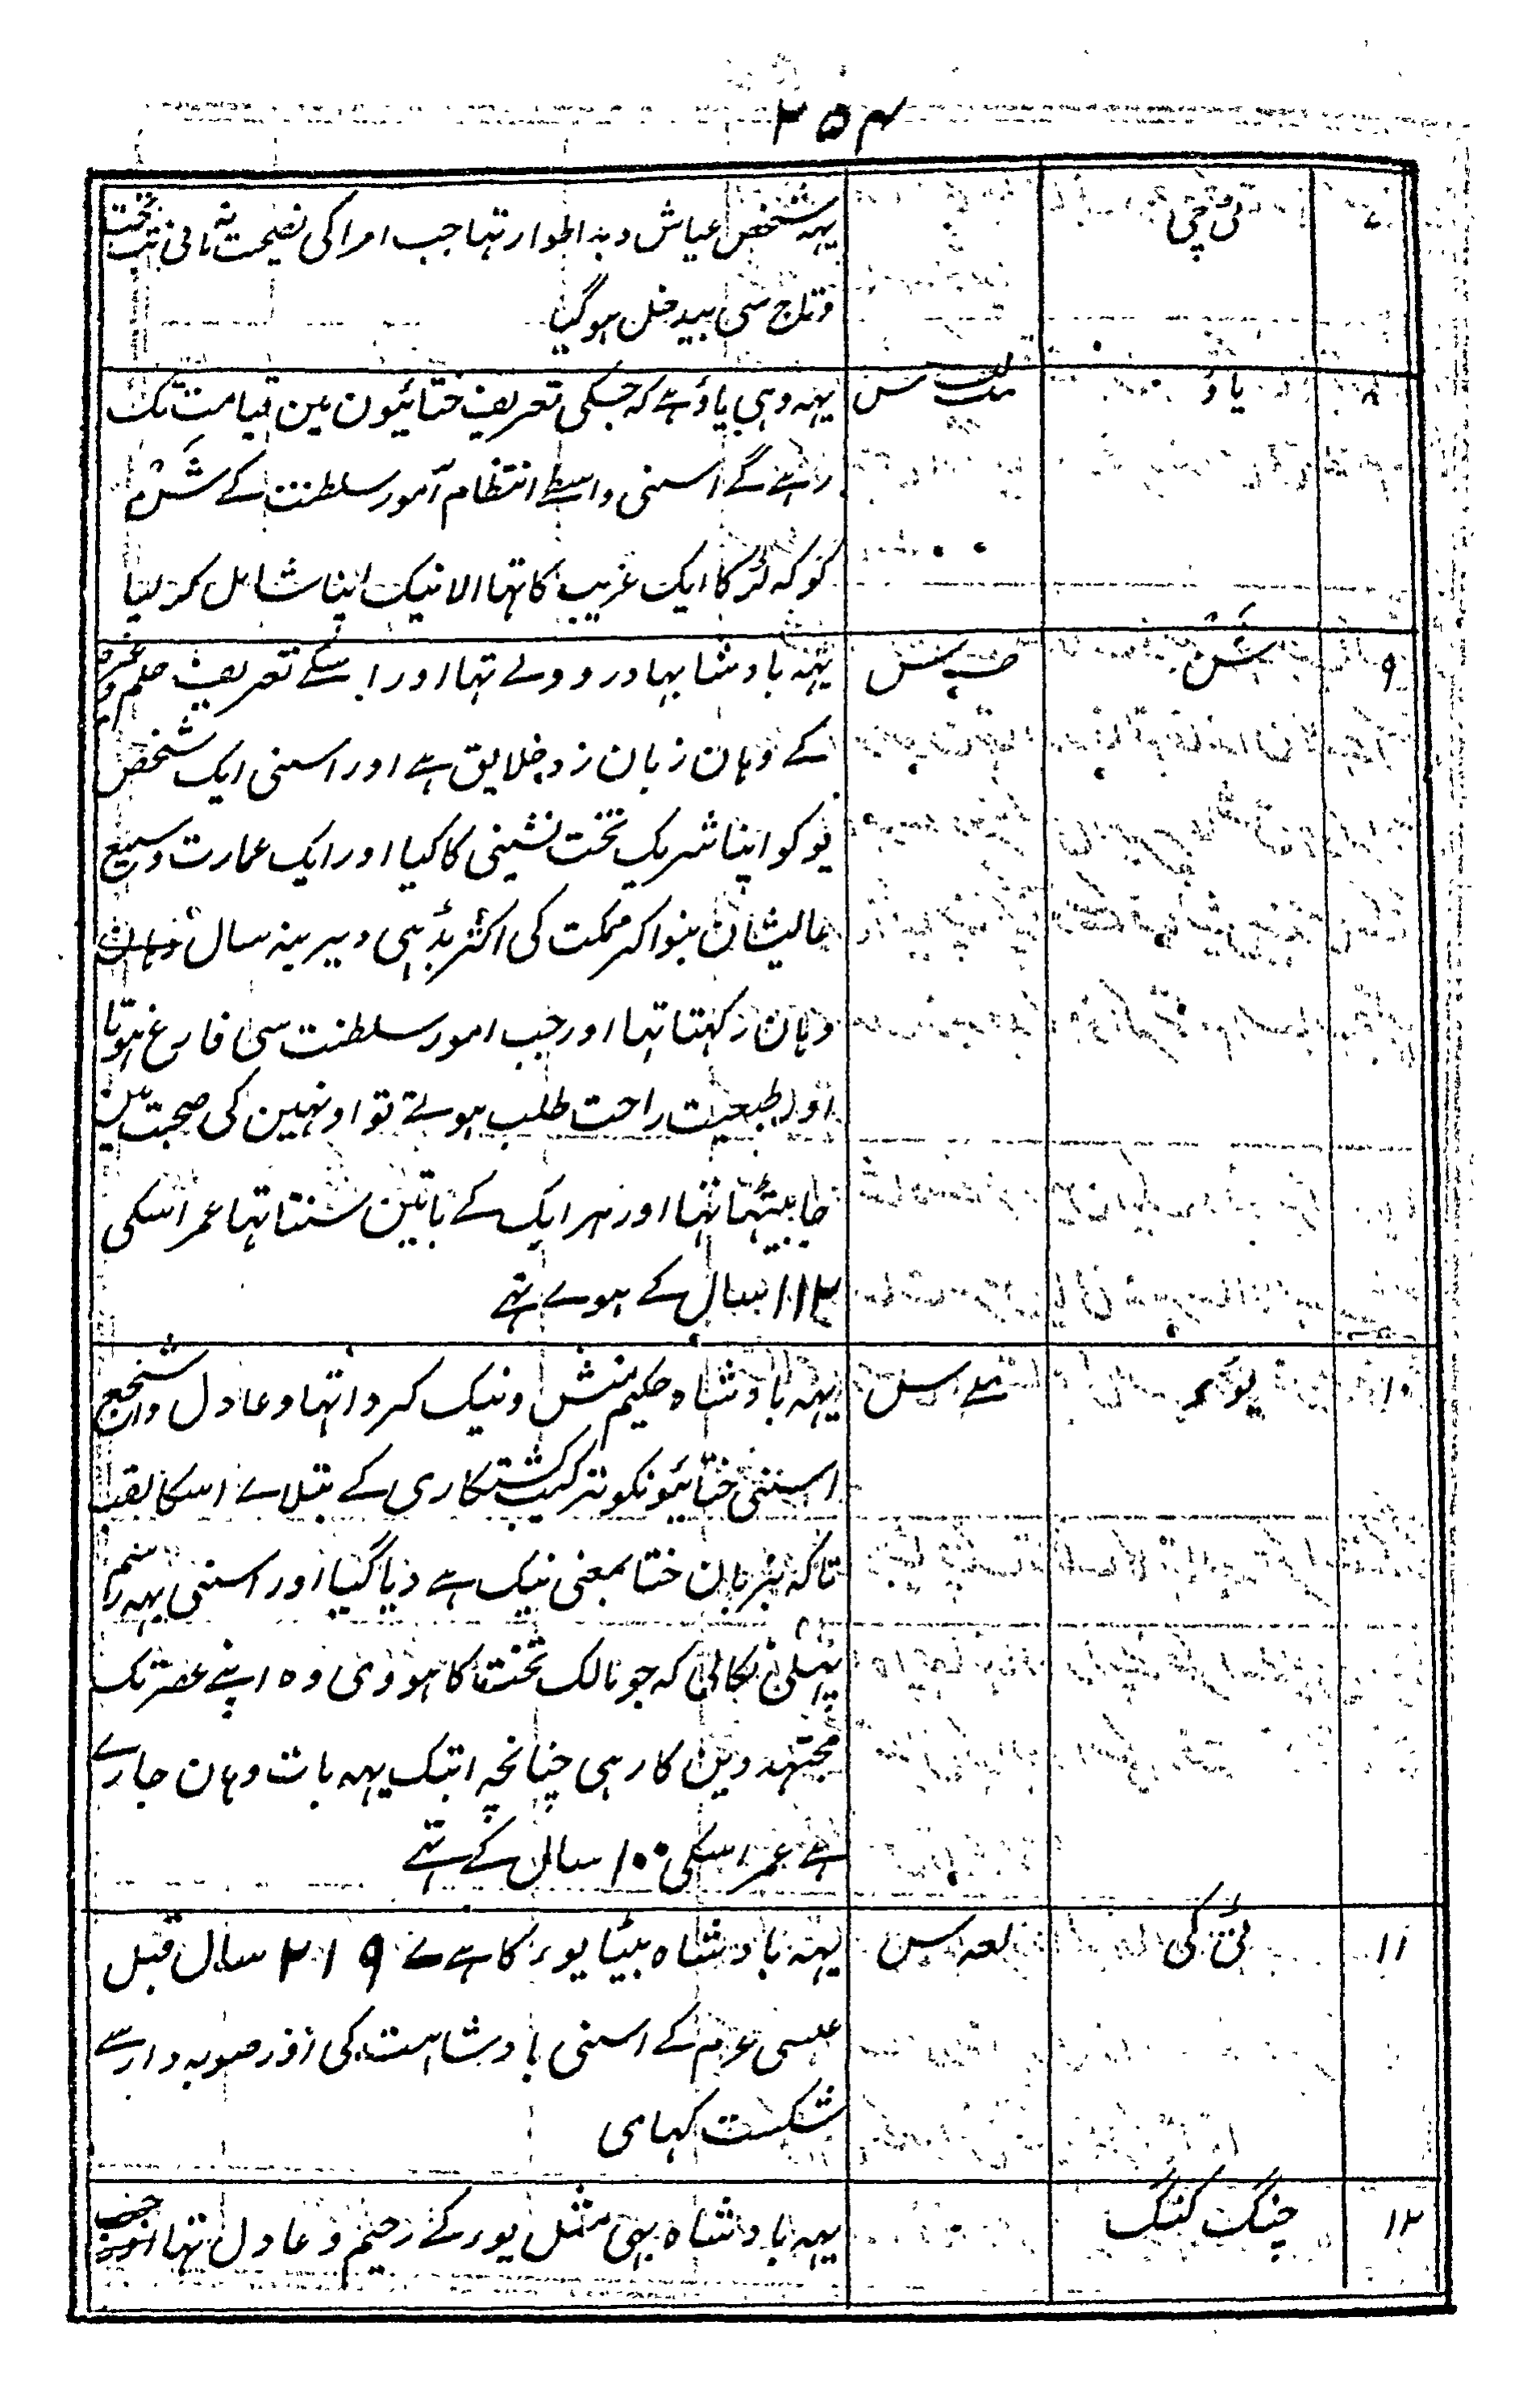 ۲۵۴
۷ تی چی یہہ شخص عیاش و بد اطوار تہا جب امرا کی نصیحت نہ مانی تب تخت
و تاج سی بیدخل ہو گیا
۸ یاؤ یہہ وہی یاؤ ہے کہ جسکی تعریف ختائیون مین قیامت تک
رہے گے اسنی واسطے انتظام امور سلطنت کے شن
گو کہ لڑکا ایک غریب کا تہا الا نیک اپنا شامل کر لیا
۹ شن یہہ بادشا بہادر و ولے تہا اور اسکے تعریف حلم وغیرہ
کے وہان زبان زد خلایق ہے اور اسنی ایک شخص
یو کو اپنا شریک تخت نشینی کا کیا اور ایک عمارت وسیع
عالیشان بنوا کر مملکت کی اکثر بڈہی دیرینہ سال
وہان رکہتا تہا اور جب امور سلطنت سی فارغ ہوتا
اور طبعیت راحت طلب ہوتے تو اونہین کی صحبت مین
جا بیٹہتا تہا اور ہر ایک کے باتین سنتا تہا عمر اسکی
۱۱۲ سال کے ہوے تہے
۱۰ یوء یہہ بادشاہ حکیم منش و نیک کردا تہا و عادل و اشجع
اسنی ختائیونکو ترکیب کشتکاری کے بتلاے اسکا لقب
تا کہ بزبان ختا بمعنی نیک ہے دیا گیا اور اسنی یہہ رسم
پہلی نکالی کہ جو مالک تخت کا ہووی وہ اپنے عصر تک
مجتہد دین کا رہی چنانچہ ابتک یہہ بات وہان جارے
ہے عمر اسکی ۱۰۰ سال کے تہے
۱۱ تی کی یہہ بادشاہ بیٹا یوء کا ہے ۲۱۹ سال قبل
عیسی عرم کے اسنی بادشاہت کی اور صوبہ دار سے
شکست کہاہی
۱۲ چنگ کنگ یہہ بادشاہ بہی مثل یوء کے رحیم و عادل تہا